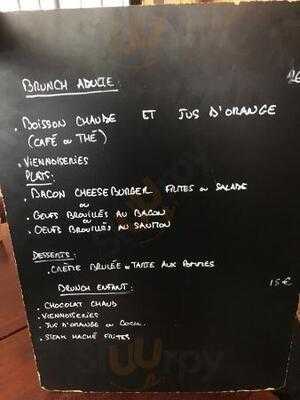 BRUNCH ADULTE :
. BOISSON CHAUDE ET JUS D'ORANGE
(CAFÉ OU THÉ)
. VIENNOISERIES
PLATS :
. BACON CHEESE BURGER FRITES OU SALADE
OU
. OEUFS BROUILLÉS AU BACON
OU
. OEUFS BROUILLÉS AU SAUMON
DESSERTS :
. CRÈME BRULÉE OU TARTE AUX POMMES
BRUNCH ENFANT : 15€
. CHOCOLAT CHAUD
. VIENNOISERIES
. JUS D'ORANGE OU COCA.
. STEAK HACHÉ FRITES